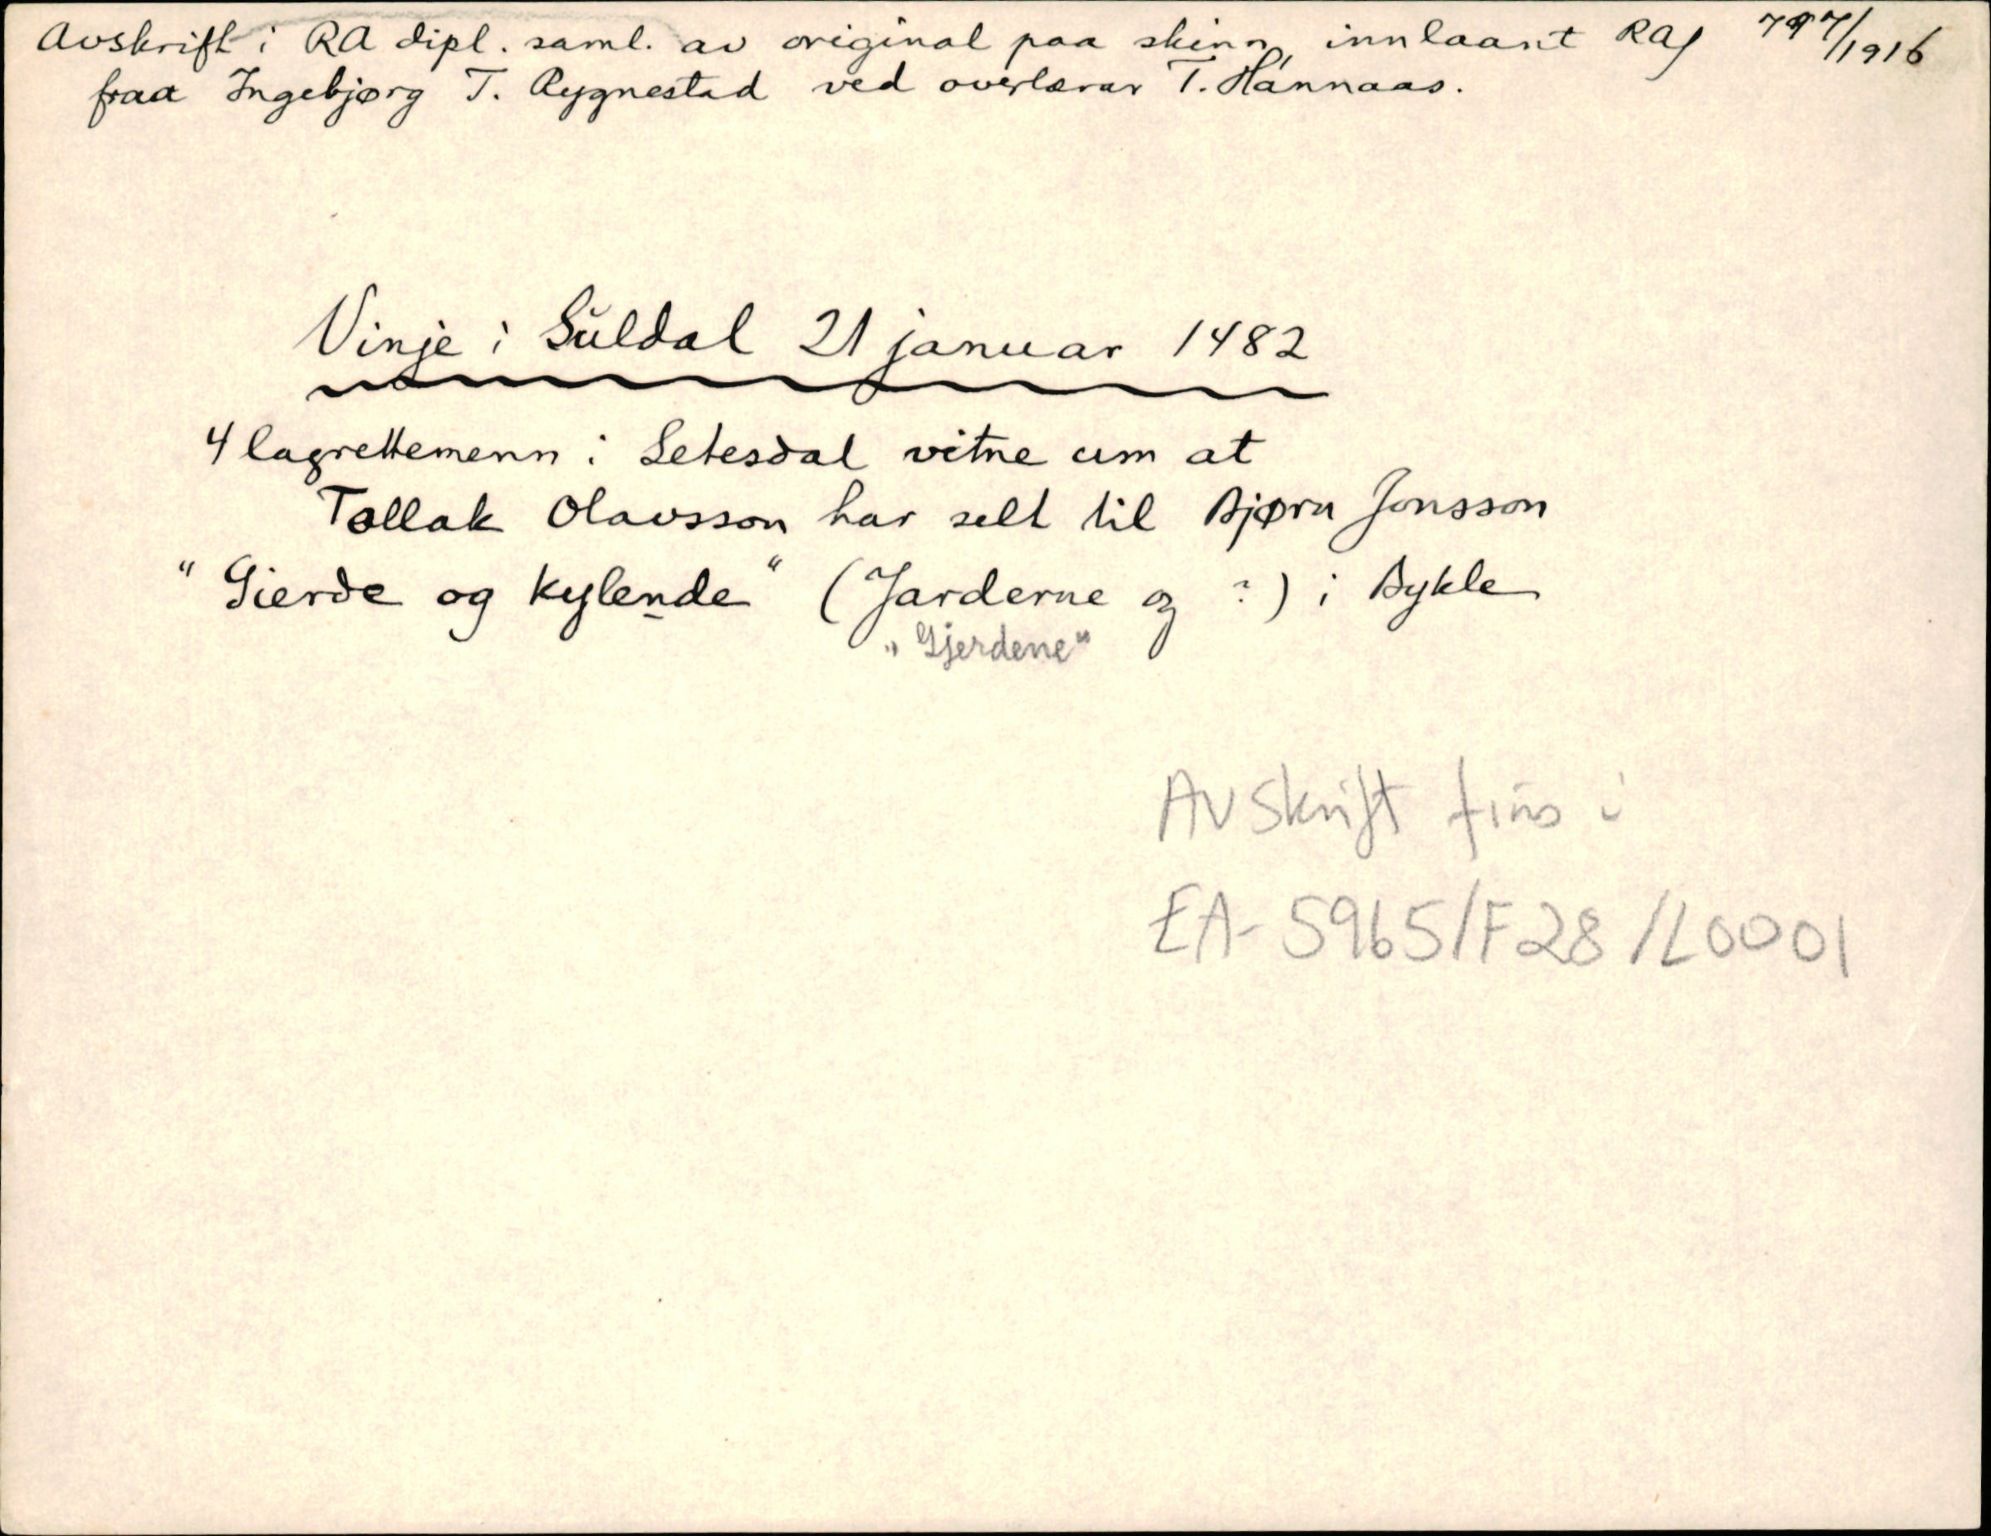 Avskrift i RA dipl. saml. av original paa skinn, innlaant RA, 797/1916
fraa Ingebjørg T. Rygnestad ved overlærar T. Hannaas.
Vinje i Suldal 21 januar 1482
4 lagrettemenn i Setesdal vitne um at
Tallak Olavsson har selt til Bjørn Jonsson
"Gierde og kylende" (Jarderne og ?) i Bykle
"Gjerdene"
Avskrift fins i
EA-5965/F28/L0001